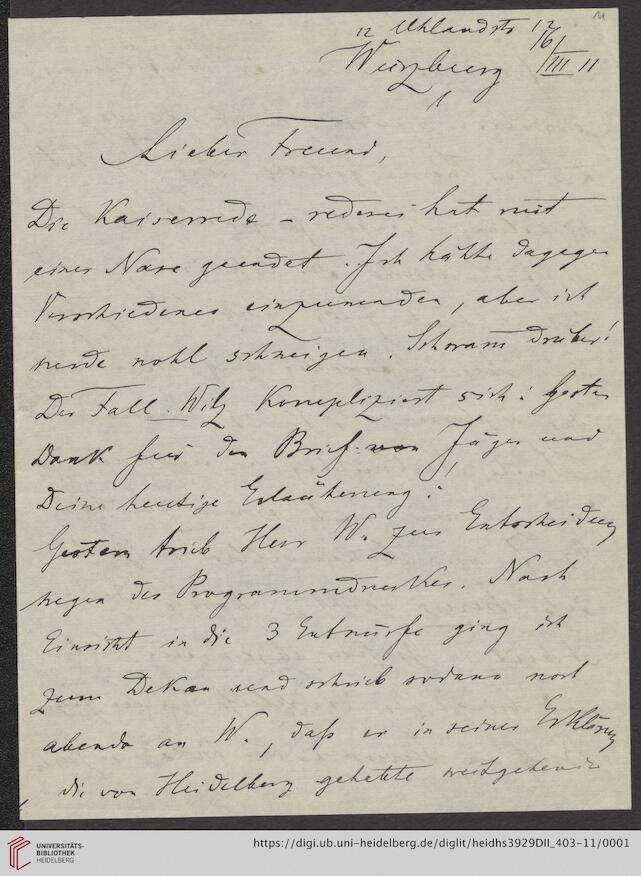 12 Uhlandstr 12
Würzburg 16/III 11
Lieber Freund,
Die Kaiserrede - rederei hat mit
einer Nase geendet. Ich hätte dagegen
Verschiedenes einzuwenden, aber ich
werde wohl schweigen. Schwam̄ drüber!
Der Fall Witz kompliziert sich: Besten
Dank für den Brief von Jäger und
Deine heutige Erläuterung:
Gestern trieb Herr W. zur Entscheidung
wegen des Programmdruckes. Nach
Einsicht in die 3 Entwürfe ging ich
zum Dekan und schrieb sodann noch
abends an W., daß er in seiner Erklärung
die von Heidelberg gehabte weitgehende
UNIVERSITÄTS-
BIBLIOTHEK
HEIDELBERG
https://digi.ub.uni-heidelberg.de/diglit/heidhs3929DII_403-11/0001